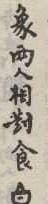 象兩人相對食𠂤